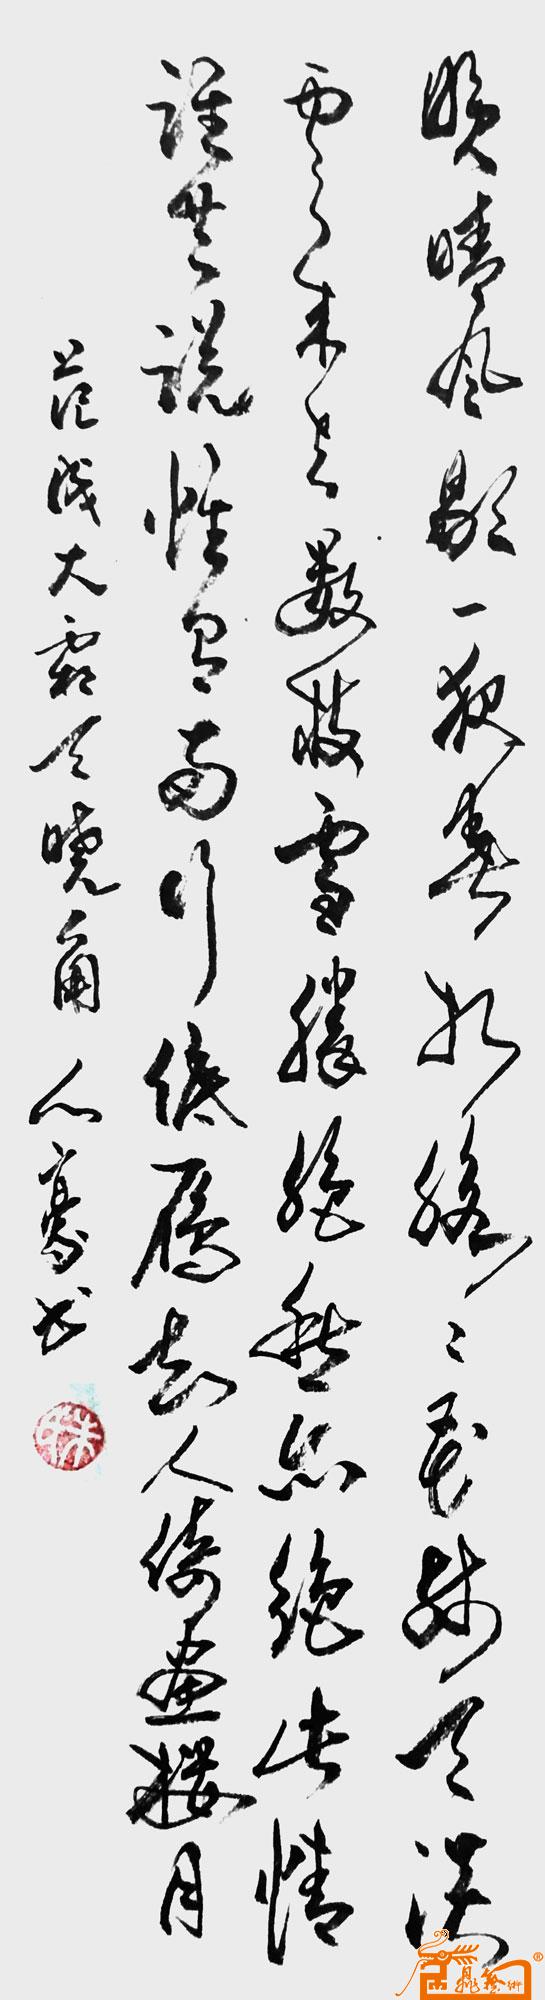 晚晴风歇一夜春威折脉脉花疏天淡
云来去数枝雪胜绝愁亦绝此情
谁共说惟有两行低雁知人倚画楼月
范成大霜天晓角 心豪书